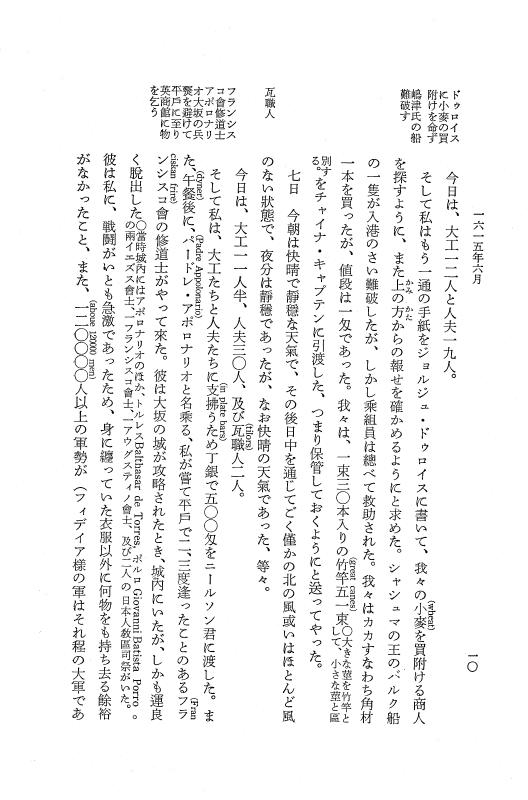 一六一五年六月
一〇
ドゥロイス
に小麥の買
附けを命ず
嶋津氏の船
難破す
瓦職人
フランシス
コ會修道士
アポロナリ
オ大坂の兵
燹を避けて
平戸に至り
英商館に物
を乞う
今日は、大工一二人と人夫一九人。
そして私はもう一通の手紙をジョルジュ・ドゥロイスに書いて、我々の小麥を買附ける商人
(wheat)
を探すように、また上の方からの報せを確かめるようにと求めた。シャシュマの王のバルク船
かみ かた
の一隻が入港のさい難破したが、しかし乘組員は總べて救助された。我々はカカすなわち角材
一本を買ったが、値段は一匁であった。我々は、一束三〇本入りの竹竿五一束〇大きな莖を竹竿と
(great canes)
して、小さな莖と區
別す
る。をチャイナ・キャプテンに引渡した、つまり保管しておくようにと送ってやった。
七日 今朝は快晴で靜穩な天氣で、その後日中を通じてごく僅かの北の風或いはほとんど風
のない狀態で、夜分は靜穩であったが、なお快晴の天氣であった、等々。
今日は、大工一一人半、人夫三〇人、及び瓦職人二人。
(tilors)
そして私は、大工たちと人夫たちに支拂うため丁銀で五〇〇匁をニールソン君に渡した。ま
(in plate bars)
た、午餐後に、パードレ・アポロナリオと名乘る、私が嘗て平戸で二、三度逢ったことのあるフラ
(dyner)
(Padre Appolonario)
(Fran
ンシスコ會の修道士がやって來た。彼は大坂の城が攻略されたとき、城內にいたが、しかも運良
ciskan frire)
く脫出した〇當時城內にはアポロナリオのほか、トルレスBalthasar de Torres, ポルロ Giovanni Batista Porro
の兩イエズス會士、一フランシスコ會士、一アウグスティノ會士、及び二人の日本人敎區司祭がいた。。
彼は私に、戰鬪がいとも急激であったため、身に纏っていた衣服以外に何物をも持ち去る餘裕
がなかったこと、また、一二〇〇〇〇人以上の軍勢が（フィデイア様の軍はそれ程の大軍であ
(aboue 120000 men)